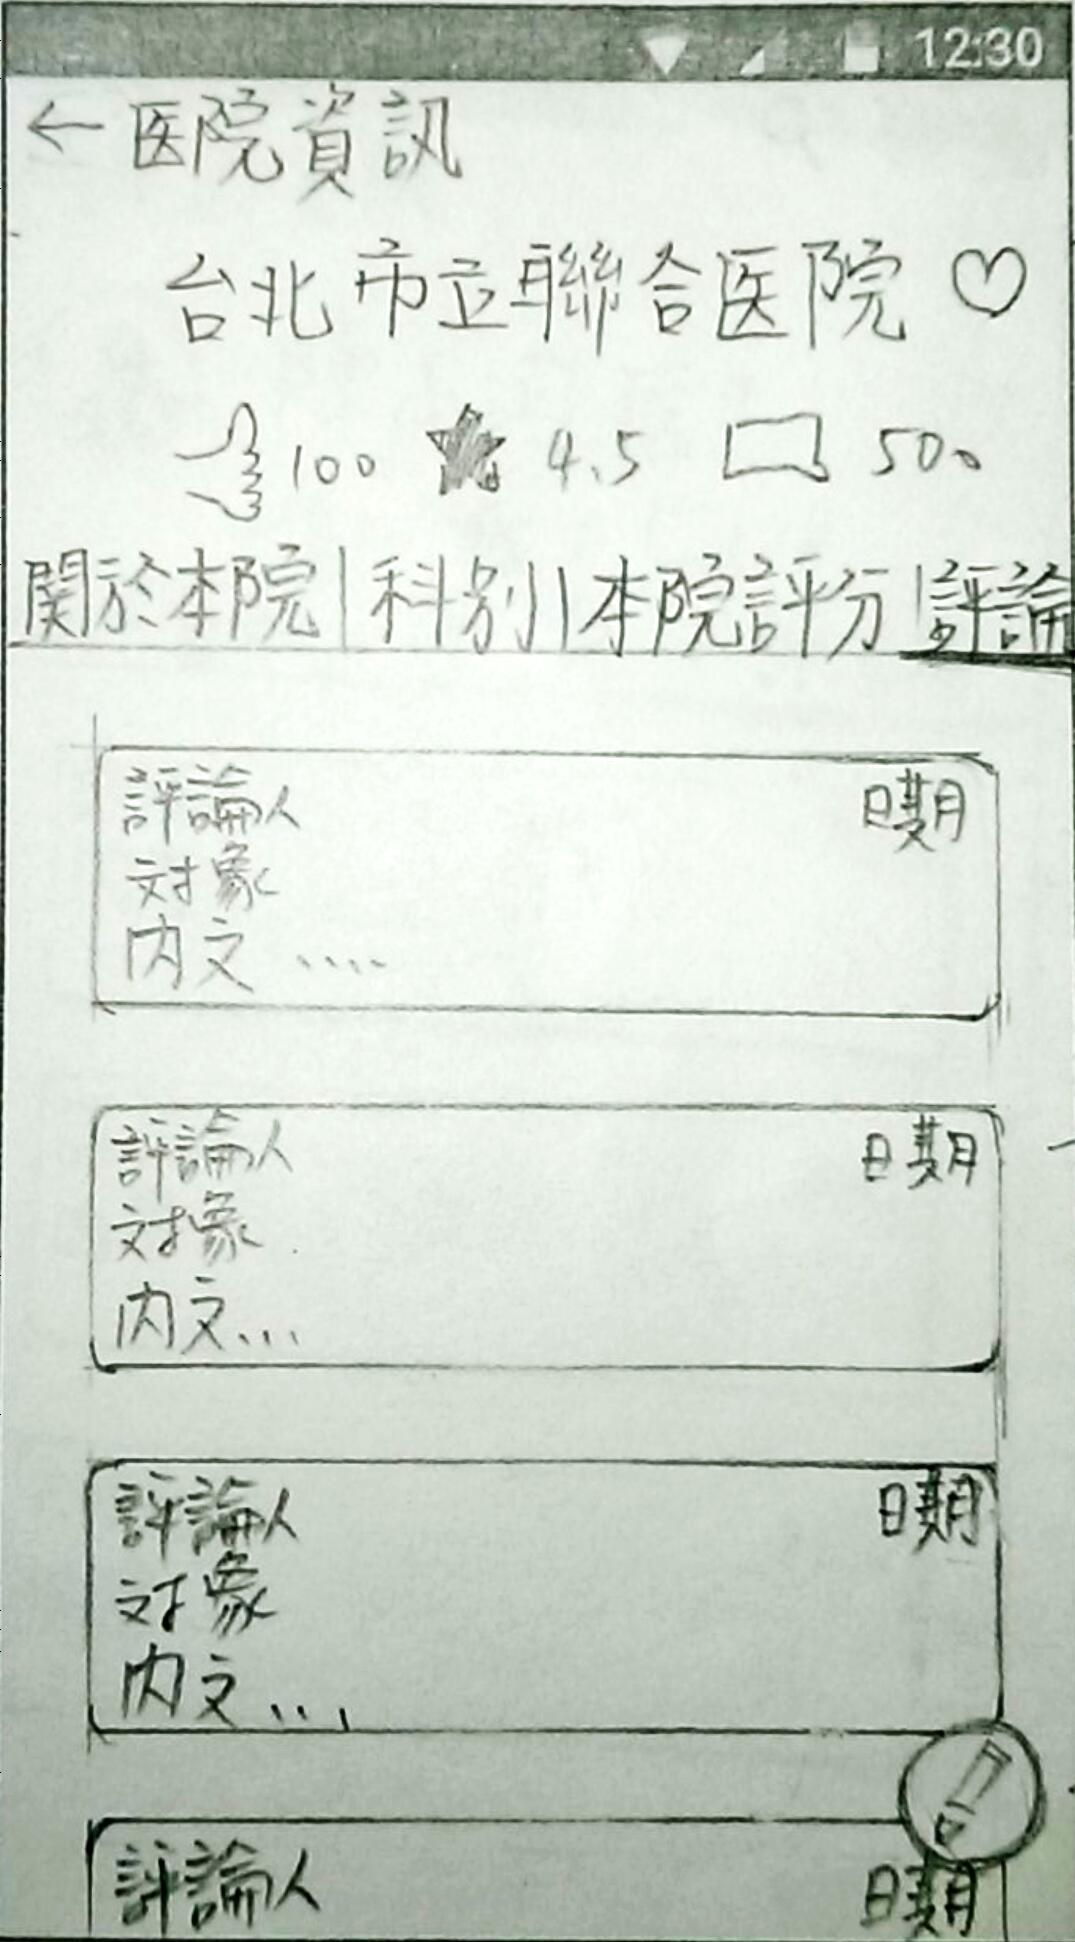 12:30
←医院資訊
台北市立聯合医院 ♡
100 4.5 500
関於本院|科別|本院評分|評論
評論人 日期
対象
内文 ....
評論人 日期
対象
内文...
評論人 日期
対象
内文...
!
評論人 日期